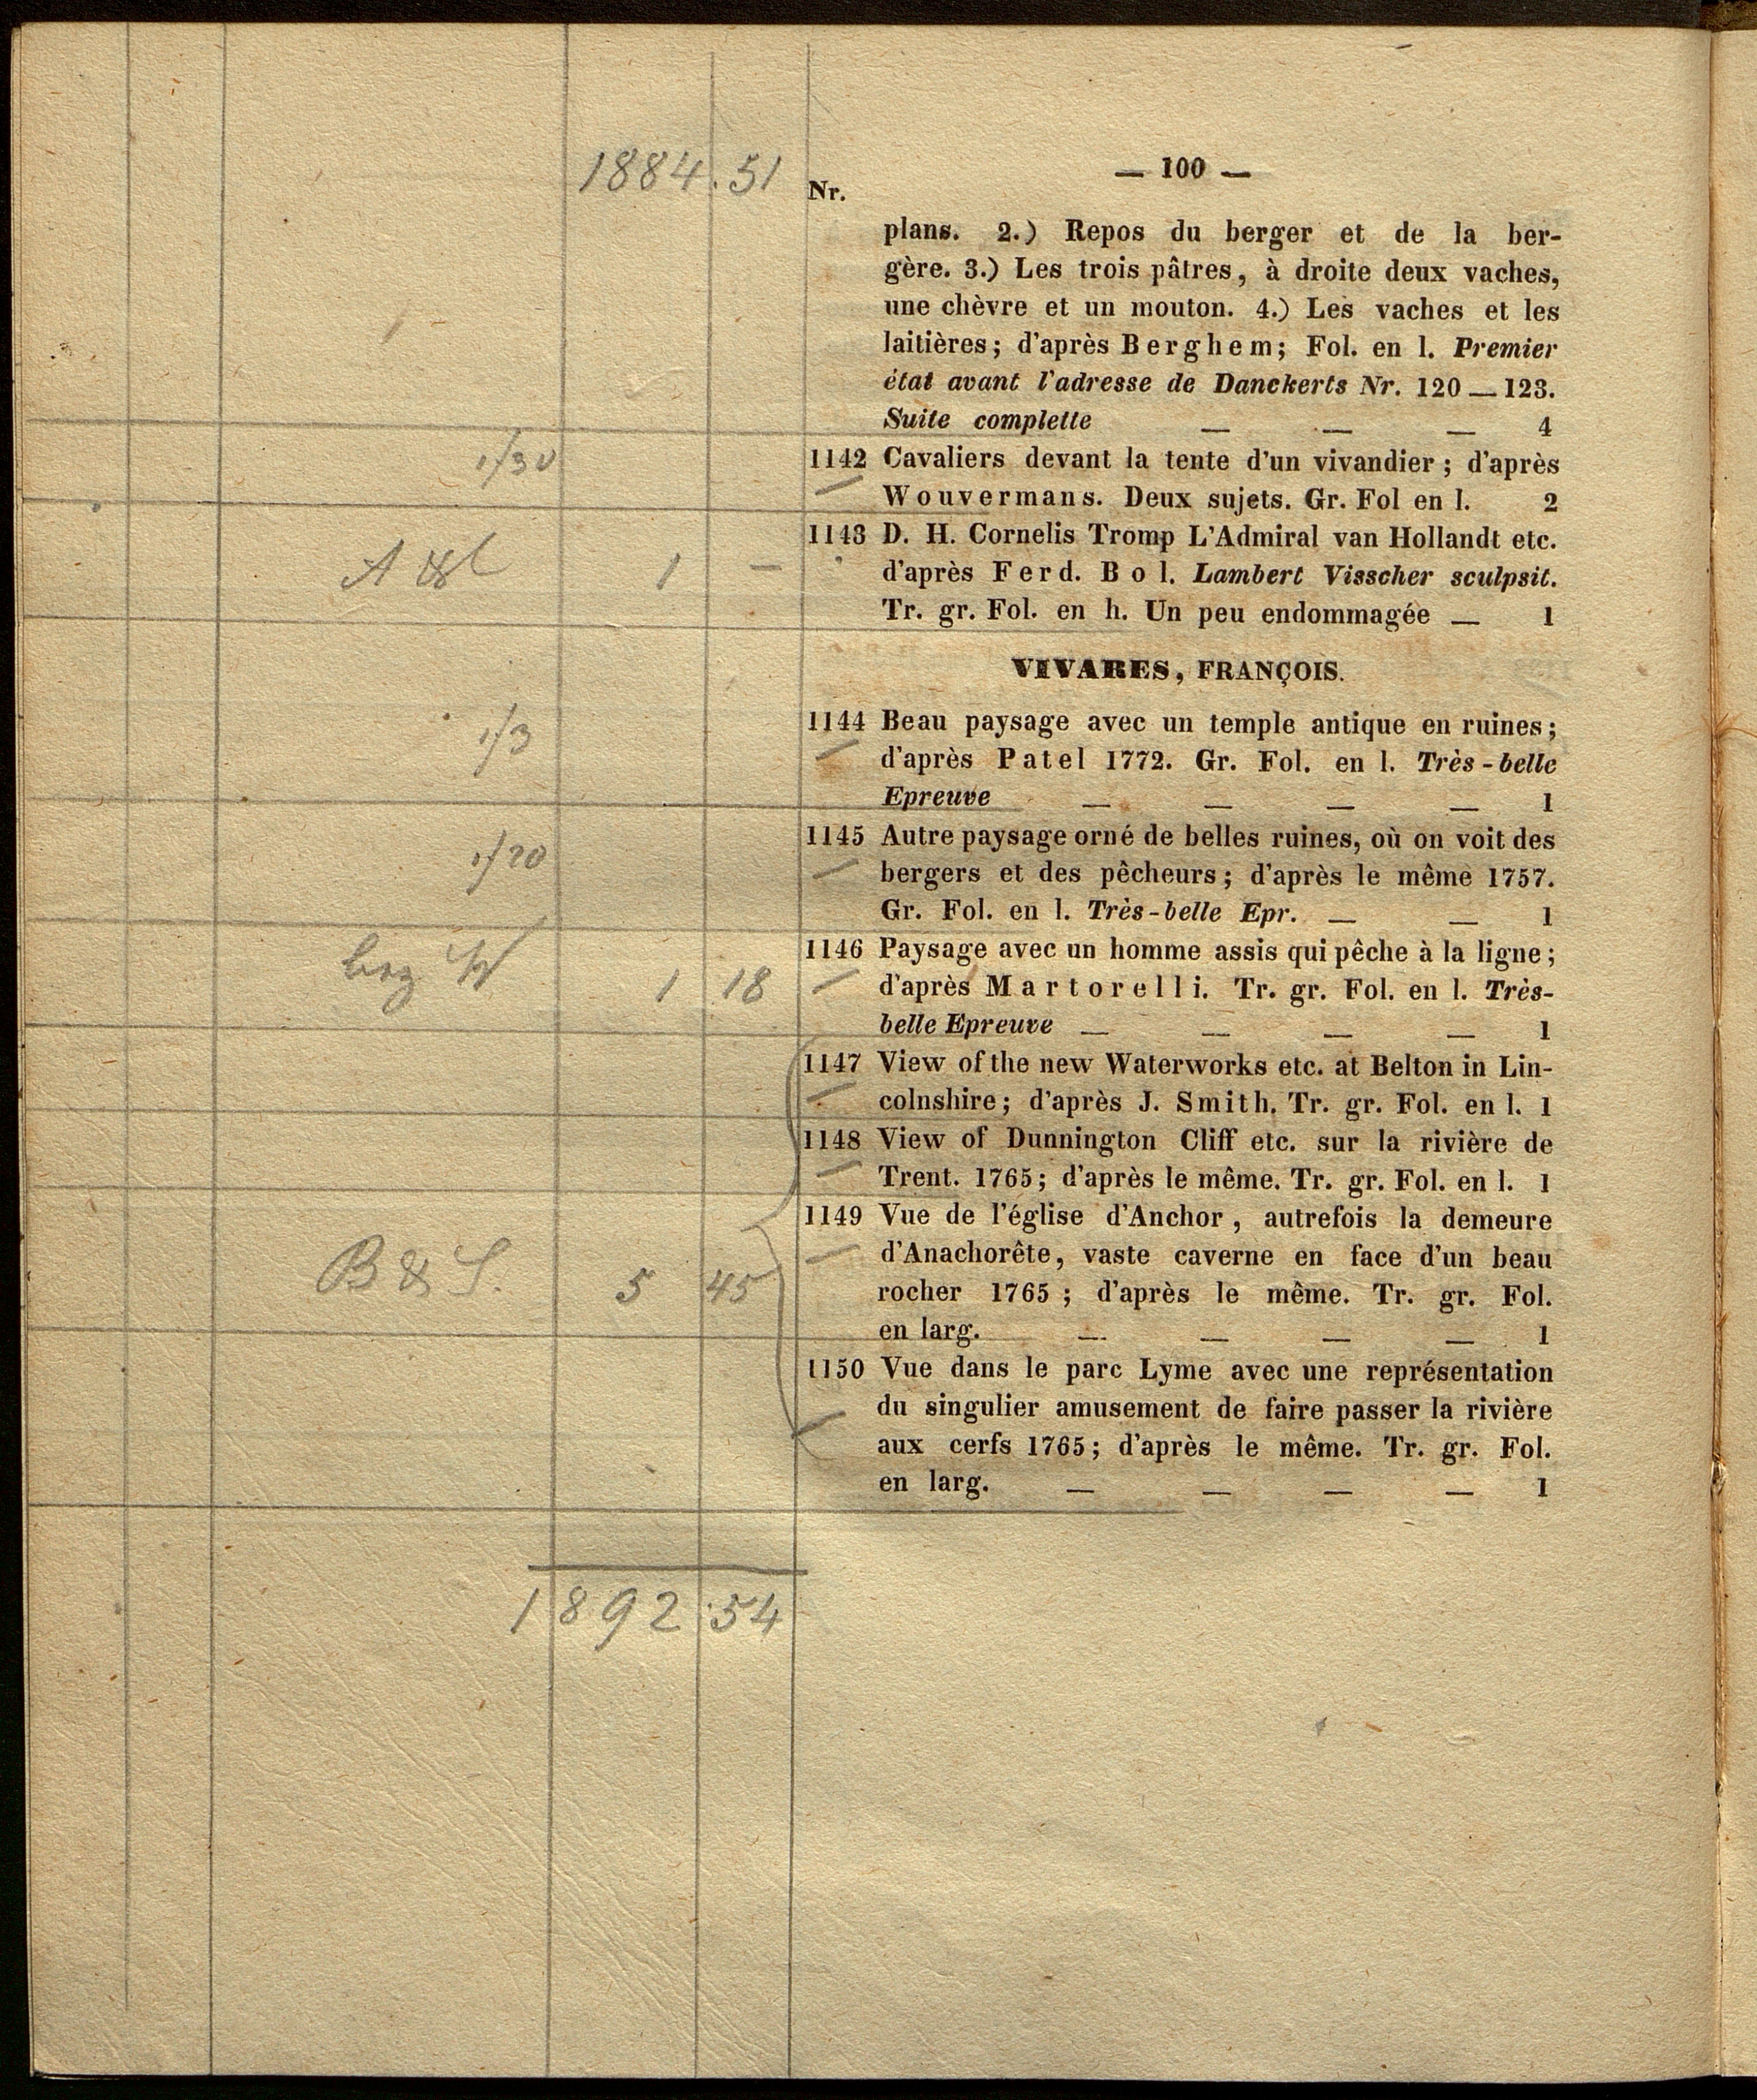 1884.51
— 100 —
Nr.
plans. 2.) Repos du berger et de la ber-
gère. 3.) Les trois pâtres, à droite deux vaches,
une chèvre et un mouton. 4.) Les vaches et les
laitières; d'après Berghem; Fol. en l. Premier
état avant l'adresse de Danckerts Nr. 120 — 123.
Suite complette — — — 4
1142 Cavaliers devant la tente d'un vivandier; d'après
Wouvermans. Deux sujets. Gr. Fol en l. 2
1143 D. H. Cornelis Tromp L'Admiral van Hollandt etc.
1 — d'après Ferd. Bol. Lambert Visscher sculpsit.
Tr. gr. Fol. en h. Un peu endommagée — 1
VIVARES, FRANÇOIS.
1144 Beau paysage avec un temple antique en ruines;
d'après Patel 1772. Gr. Fol. en l. Très-belle
Epreuve — — — — 1
1145 Autre paysage orné de belles ruines, où on voit des
bergers et des pêcheurs; d'après le même 1757.
Gr. Fol. en l. Très-belle Epr. — — 1
1146 Paysage avec un homme assis qui pêche à la ligne;
1 18 d'après Martorelli. Tr. gr. Fol. en l. Très-
belle Epreuve — — — — 1
1147 View of the new Waterworks etc. at Belton in Lin-
colnshire; d'après J. Smith. Tr. gr. Fol. en l. 1
1148 View of Dunnington Cliff etc. sur la rivière de
Trent. 1765; d'après le même. Tr. gr. Fol. en l. 1
1149 Vue de l'église d'Anchor, autrefois la demeure
d'Anachorête, vaste caverne en face d'un beau
B & S. 5 45 rocher 1765; d'après le même. Tr. gr. Fol.
en larg. — — — — 1
1150 Vue dans le parc Lyme avec une représentation
du singulier amusement de faire passer la rivière
aux cerfs 1765; d'après le même. Tr. gr. Fol.
en larg. — — — — 1
1892.54